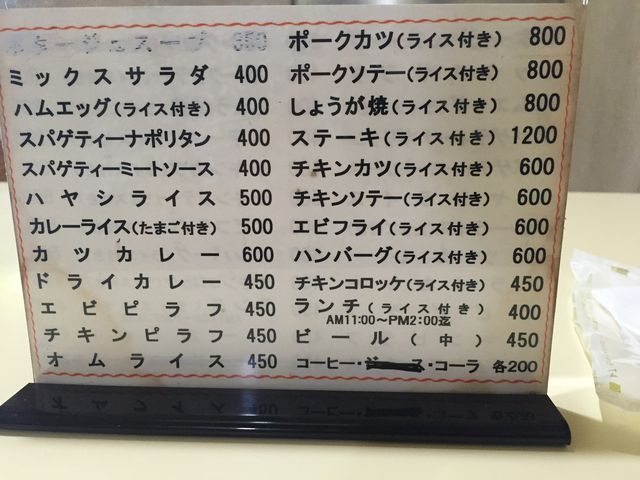 タージュスープ 350
ミックスサラダ 400
ハムエッグ(ライス付き) 400
スパゲティーナポリタン 400
スパゲティーミートソース 400
ハヤシライス 500
カレーライス(たまご付き) 500
カツカレー 600
ドライカレー 450
エビピラフ 450
チキンピラフ 450
オムライス 450
ポークカツ(ライス付き) 800
ポークソテー(ライス付き) 800
しょうが焼(ライス付き) 800
ステーキ(ライス付き) 1200
チキンカツ(ライス付き) 600
チキンソテー(ライス付き) 600
エビフライ(ライス付き) 600
ハンバーグ(ライス付き) 600
チキンコロッケ(ライス付き) 450
ランチ(ライス付き) 400
AM11:00~PM2:00迄
ビール(中) 450
コーヒー・ジュース・コーラ 各200